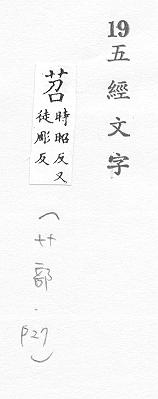 19五經文字
苕
時昭反又
徒彫反
（艹部．
P27）